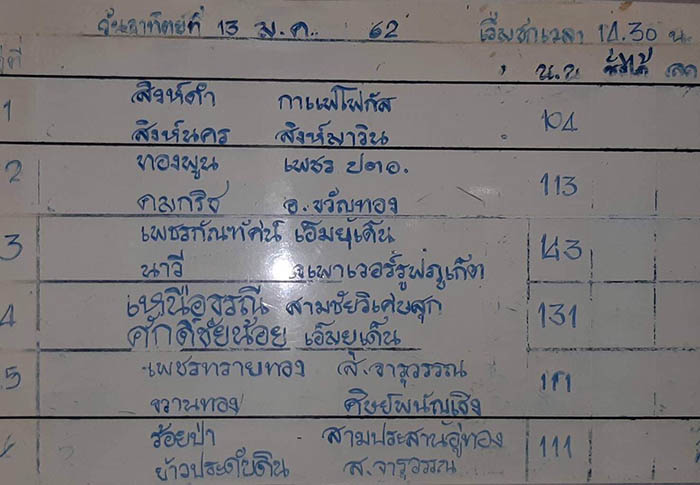 วันอาทิตย์ที่ 13 ม.ค. 62 เริ่มชกเวลา 14.30 น.
คู่ที่ น.น. ชั่งได้
1 สิงห์ดำ กาแฟโฟกัส
สิงห์นคร สิงห์มาวิน 104
2 ทองพูน เพชร ปตอ.
คมกริช อ.ขวัญทอง 113
3 เพชรกัณฑัศน์ เอ็มยูเด็น
นาวี เพาเวอร์รูฟภูเก็ต 143
4 เหนือธรณี สามชัยวิเศษสุก
ศักดิ์ชัยน้อย เอ็มยูเด็น 131
5 เพชรทรายทอง ส.จารุวรรณ
ขวานทอง ศิษย์พนัญเชิง 111
ร้อยป่า สามประสานอู่ทอง
ข้าวประดับดิน ส.จารุวรรณ 111